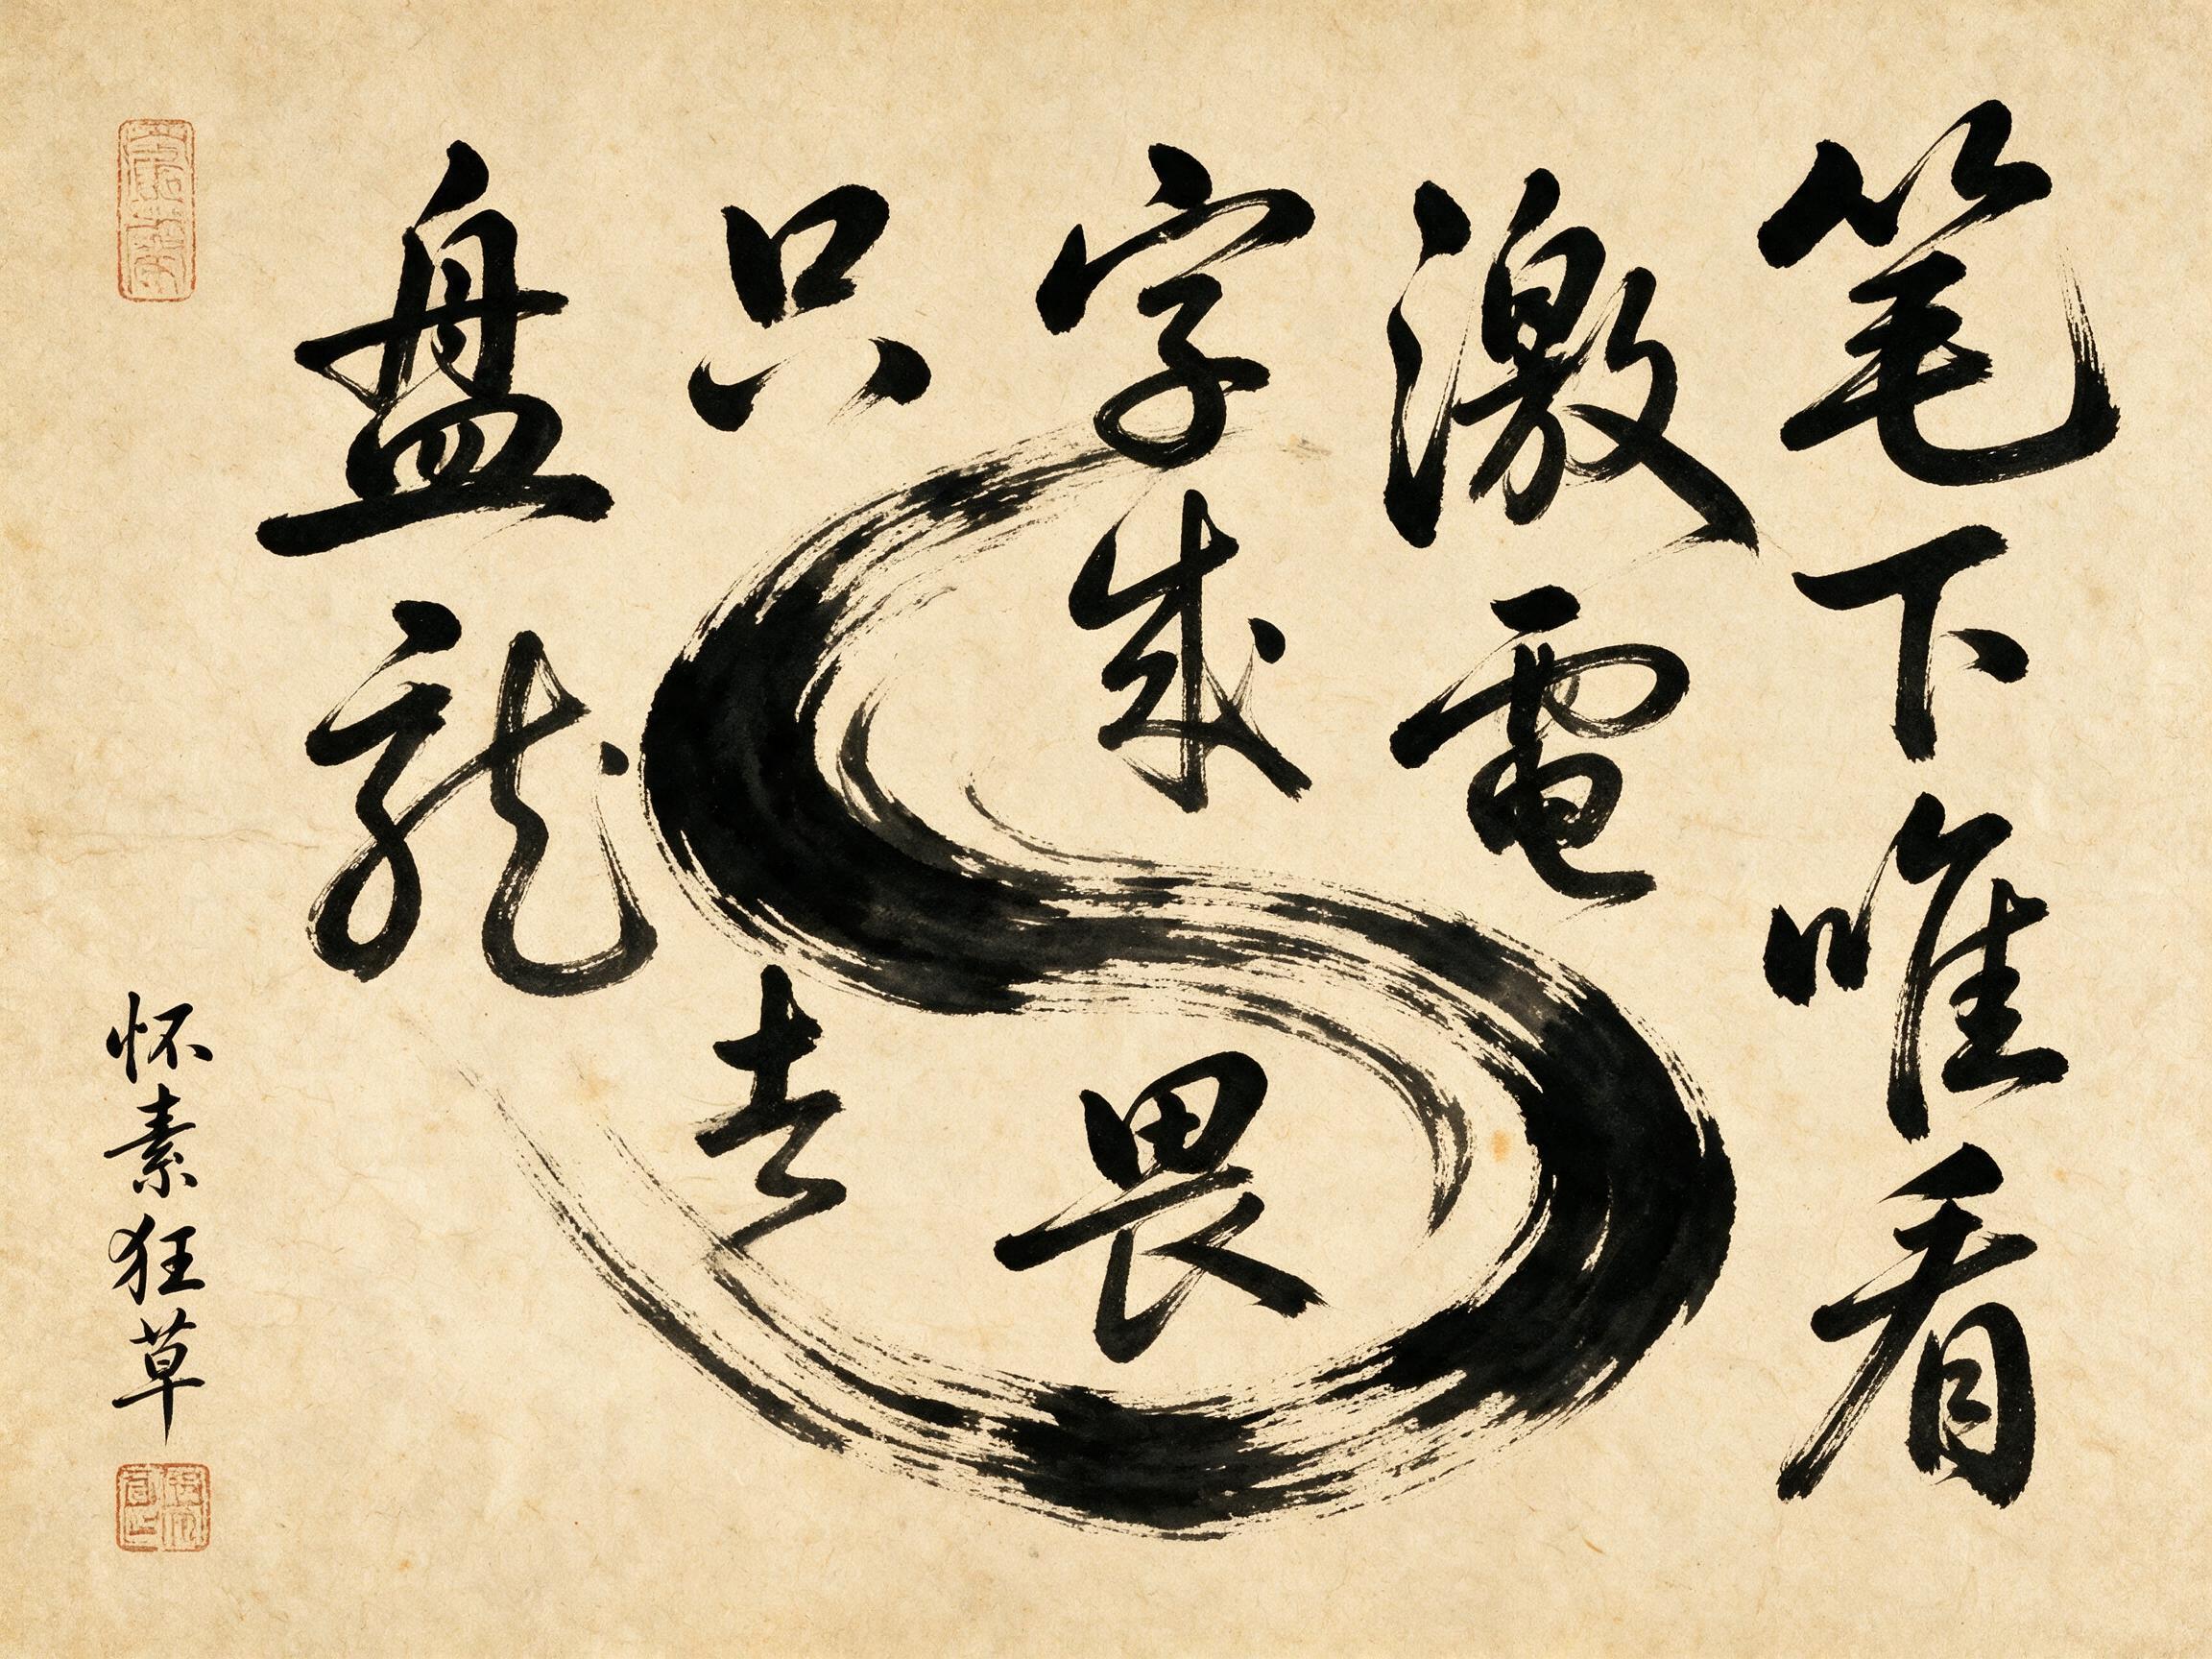 笔下唯看
激電
字成畏
只去
盘龍
怀素狂草